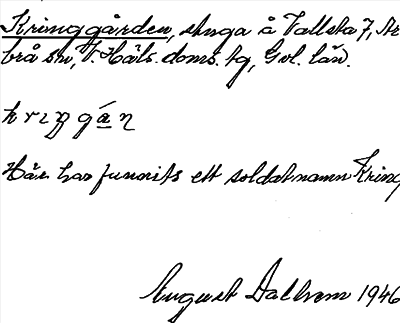 Kringgården, stuga å Vallsta 7, Ar
brå sn, V. Häls. doms. tg, Gvl. län.
Här har funnits ett soldatnamn Kring
August Dalhem 1946